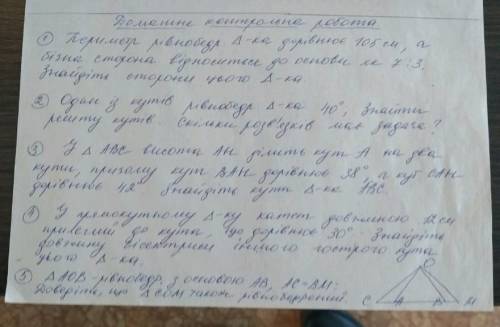 Домашня контрольна робота
① Периметр рівнобедр. Δ-ка дорівнює 105 см, а
бічна сторона відноситься до основи як 7:3.
Знайдіть сторони цього Δ-ка.
② Один із кутів рівнобедр Δ-ка 40°, Знайти
решту кутів. Скільки розв'язків має задача?
③ У Δ ABC висота AH ділить кут A на два
кути, причому кут BAH дорівнює 38°, а кут CAH
дорівнює 42°. Знайдіть кути Δ-ка ABC.
④ У прямокутному Δ-ку катет довжиною 12 см
прилеглий до кута, що дорівнює 30°. Знайдіть
довжину бісектриси іншого гострого кута
цього Δ-ка.
⑤ Δ AOB - рівнобедр. з основою AB, AC=BM.
Доведіть, що Δ COM також рівнобедрений.
O
C A B M